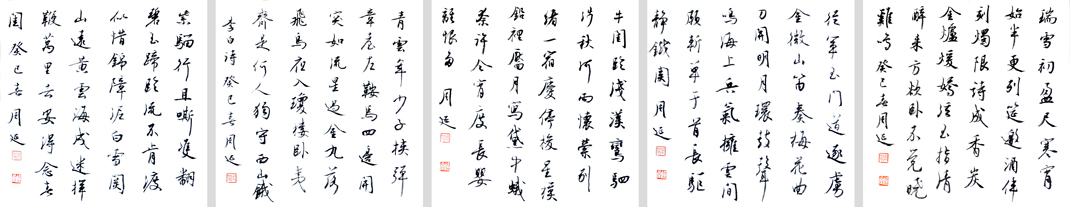 瑞雪初盈尺寒宵
始半更列筵邀酒伴
刻燭限詩成香炭
金爐煖嬌弦玉指清
醉来方欲卧不覺曉
雞鳴 癸巳春周延
從軍玉門道逐虜
金微山笛奏梅花曲
刀開明月環鼓聲
鳴海上兵氣擁雲間
願斬單于首長驅
静鐵関 周延
牛閨臨淺漢鸞駟
涉秋河两懷縈别
緒一宿慶停梭星模
鉛裡靨月寫黛中蛾
奈許今宵度長嬰
離恨多 周延
青雲年少子挟彈
章臺左鞍馬四邊開
突如流星過金丸落
飛鳥夜入瓊樓卧夷
齊是何人獨守西山餓
李白詩 癸巳春周延
紫騮行且嘶雙翻
碧玉蹄臨流不肯渡
似惜錦障泥白雪関
山遠黄雲海戍迷揮
鞭萬里去安得念春
閨 癸巳春周延